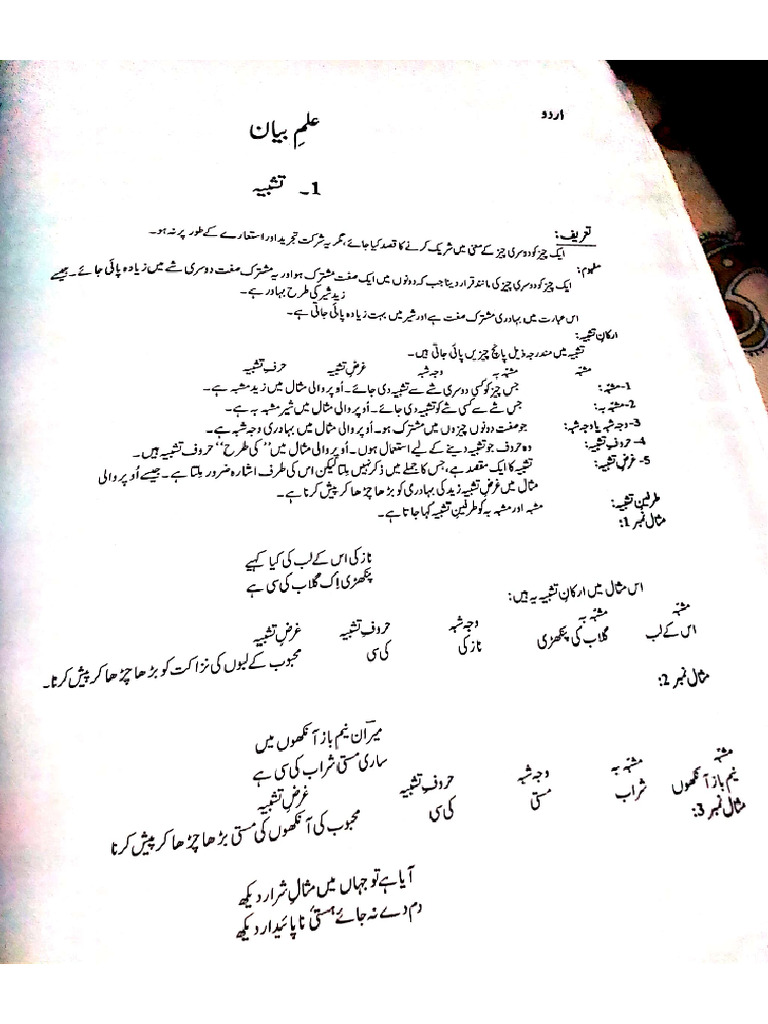 اردو
علمِ بیان
1۔ تشبیہ
تعریف:
ایک چیز کو دوسری چیز کے معنی میں شریک کرنے کا قصد کیا جائے، مگر یہ شرکت تجرید اور استعارے کے طور پر نہ ہو۔
مفہوم:
ایک چیز کو دوسری چیز کی مانند قرار دینا جب کہ دونوں میں ایک صفت مشترک ہو اور یہ مشترک صفت دوسری شے میں زیادہ پائی جائے۔ جیسے
زید شیر کی طرح بہادر ہے۔
اس عبارت میں بہادری مشترک صفت ہے اور شیر میں بہت زیادہ پائی جاتی ہے۔
ارکانِ تشبیہ:
تشبیہ میں مندرجہ ذیل پانچ چیزیں پائی جاتی ہیں۔
مشبّہ مشبّہ بہ وجہ شبہ غرضِ تشبیہ حرفِ تشبیہ
1- مشبّہ: جس چیز کو کسی دوسری شے سے تشبیہ دی جائے۔ اُوپر والی مثال میں زید مشبہ ہے۔
2- مشبّہ بہ: جس شے سے کسی شے کو تشبیہ دی جائے۔ اُوپر والی مثال میں شیر مشبہ بہ ہے۔
3- وجہ شبہ یا وجہ شبہ: جو صفت دونوں چیزوں میں مشترک ہو۔ اُوپر والی مثال میں بہادری وجہ شبہ ہے۔
4- حروفِ تشبیہ: وہ حروف جو تشبیہ دینے کے لیے استعمال ہوں۔ اُوپر والی مثال میں ”کی طرح“ حروف تشبیہ ہیں۔
5- غرضِ تشبیہ: تشبیہ کا ایک مقصد ہے، جس کا جملے میں ذکر نہیں ملتا لیکن اس کی طرف اشارہ ضرور ملتا ہے۔ جیسے اُوپر والی
مثال میں غرضِ تشبیہ زید کی بہادری کو بڑھا چڑھا کر پیش کرنا ہے۔
طرفین تشبیہ: مشبہ اور مشبہ بہ کو طرفین تشبیہ کہا جاتا ہے۔
مثال نمبر 1:
ناز کی اس کے لب کی کیا کہیے
پنکھڑی اِک گلاب کی سی ہے
اس مثال میں ارکانِ تشبیہ یہ ہیں:
مشبّہ مشبّہ بہ وجہ شبہ حروفِ تشبیہ غرضِ تشبیہ
اس کے لب گلاب کی پنکھڑی نازکی کی سی محبوب کے لبوں کی نزاکت کو بڑھا چڑھا کر پیش کرنا۔
مثال نمبر 2:
میرؔ ان نیم باز آنکھوں میں
ساری مستی شراب کی سی ہے
مشبّہ مشبّہ بہ وجہ شبہ حروفِ تشبیہ غرضِ تشبیہ
نیم باز آنکھوں شراب مستی کی سی محبوب کی آنکھوں کی مستی بڑھا چڑھا کر پیش کرنا
مثال نمبر 3:
آیا ہے تو جہاں میں مثالِ شرار دیکھ
دم دے نہ جائے ہستیٔ ناپائیدار دیکھ